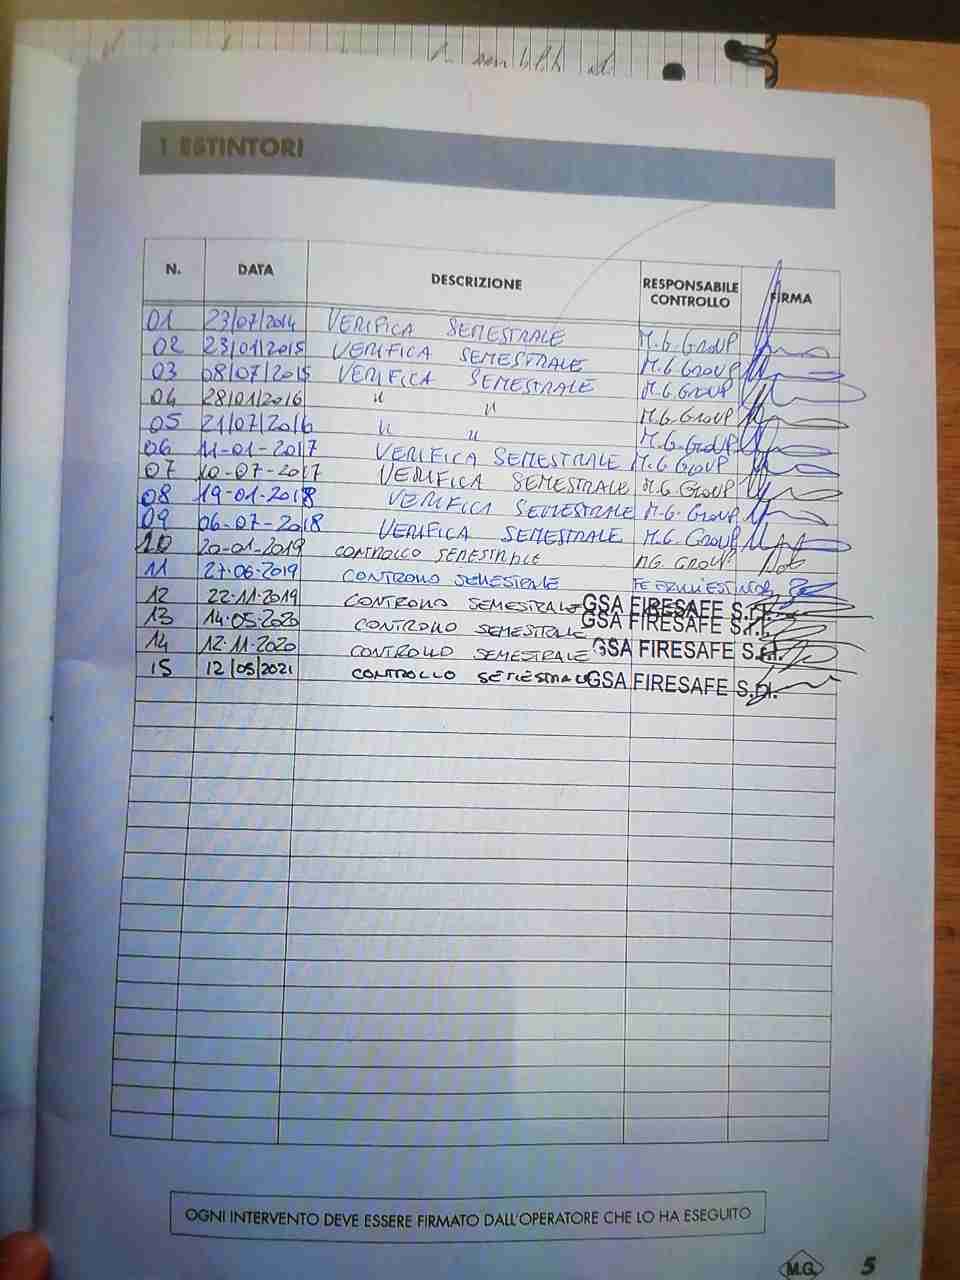 1 ESTINTORI
N. DATA DESCRIZIONE RESPONSABILE CONTROLLO FIRMA
01 23/07/2014 VERIFICA SEMESTRALE M.G. GROUP
02 23/01/2015 VERIFICA SEMESTRALE M.G. GROUP
03 08/07/2015 VERIFICA SEMESTRALE M.G. GROUP
04 28/01/2016 " " M.G. GROUP
05 21/07/2016 " " M.G. GROUP
06 11-01-2017 VERIFICA SEMESTRALE M.G. GROUP
07 10-07-2017 VERIFICA SEMESTRALE M.G. GROUP
08 19-01-2018 VERIFICA SEMESTRALE M.G. GROUP
09 06-07-2018 VERIFICA SEMESTRALE M.G. GROUP
10 20-01-2019 CONTROLLO SEMESTRALE MG. GROUP
11 27-06-2019 CONTROLLO SEMESTRALE
12 22-11-2019 CONTROLLO SEMESTRALE GSA FIRESAFE S.r.l.
13 14-05-2020 CONTROLLO SEMESTRALE GSA FIRESAFE S.r.l.
14 12-11-2020 CONTROLLO SEMESTRALE GSA FIRESAFE S.r.l.
15 12/05/2021 CONTROLLO SEMESTRALE GSA FIRESAFE S.r.l.
OGNI INTERVENTO DEVE ESSERE FIRMATO DALL'OPERATORE CHE LO HA ESEGUITO
M.G. 5